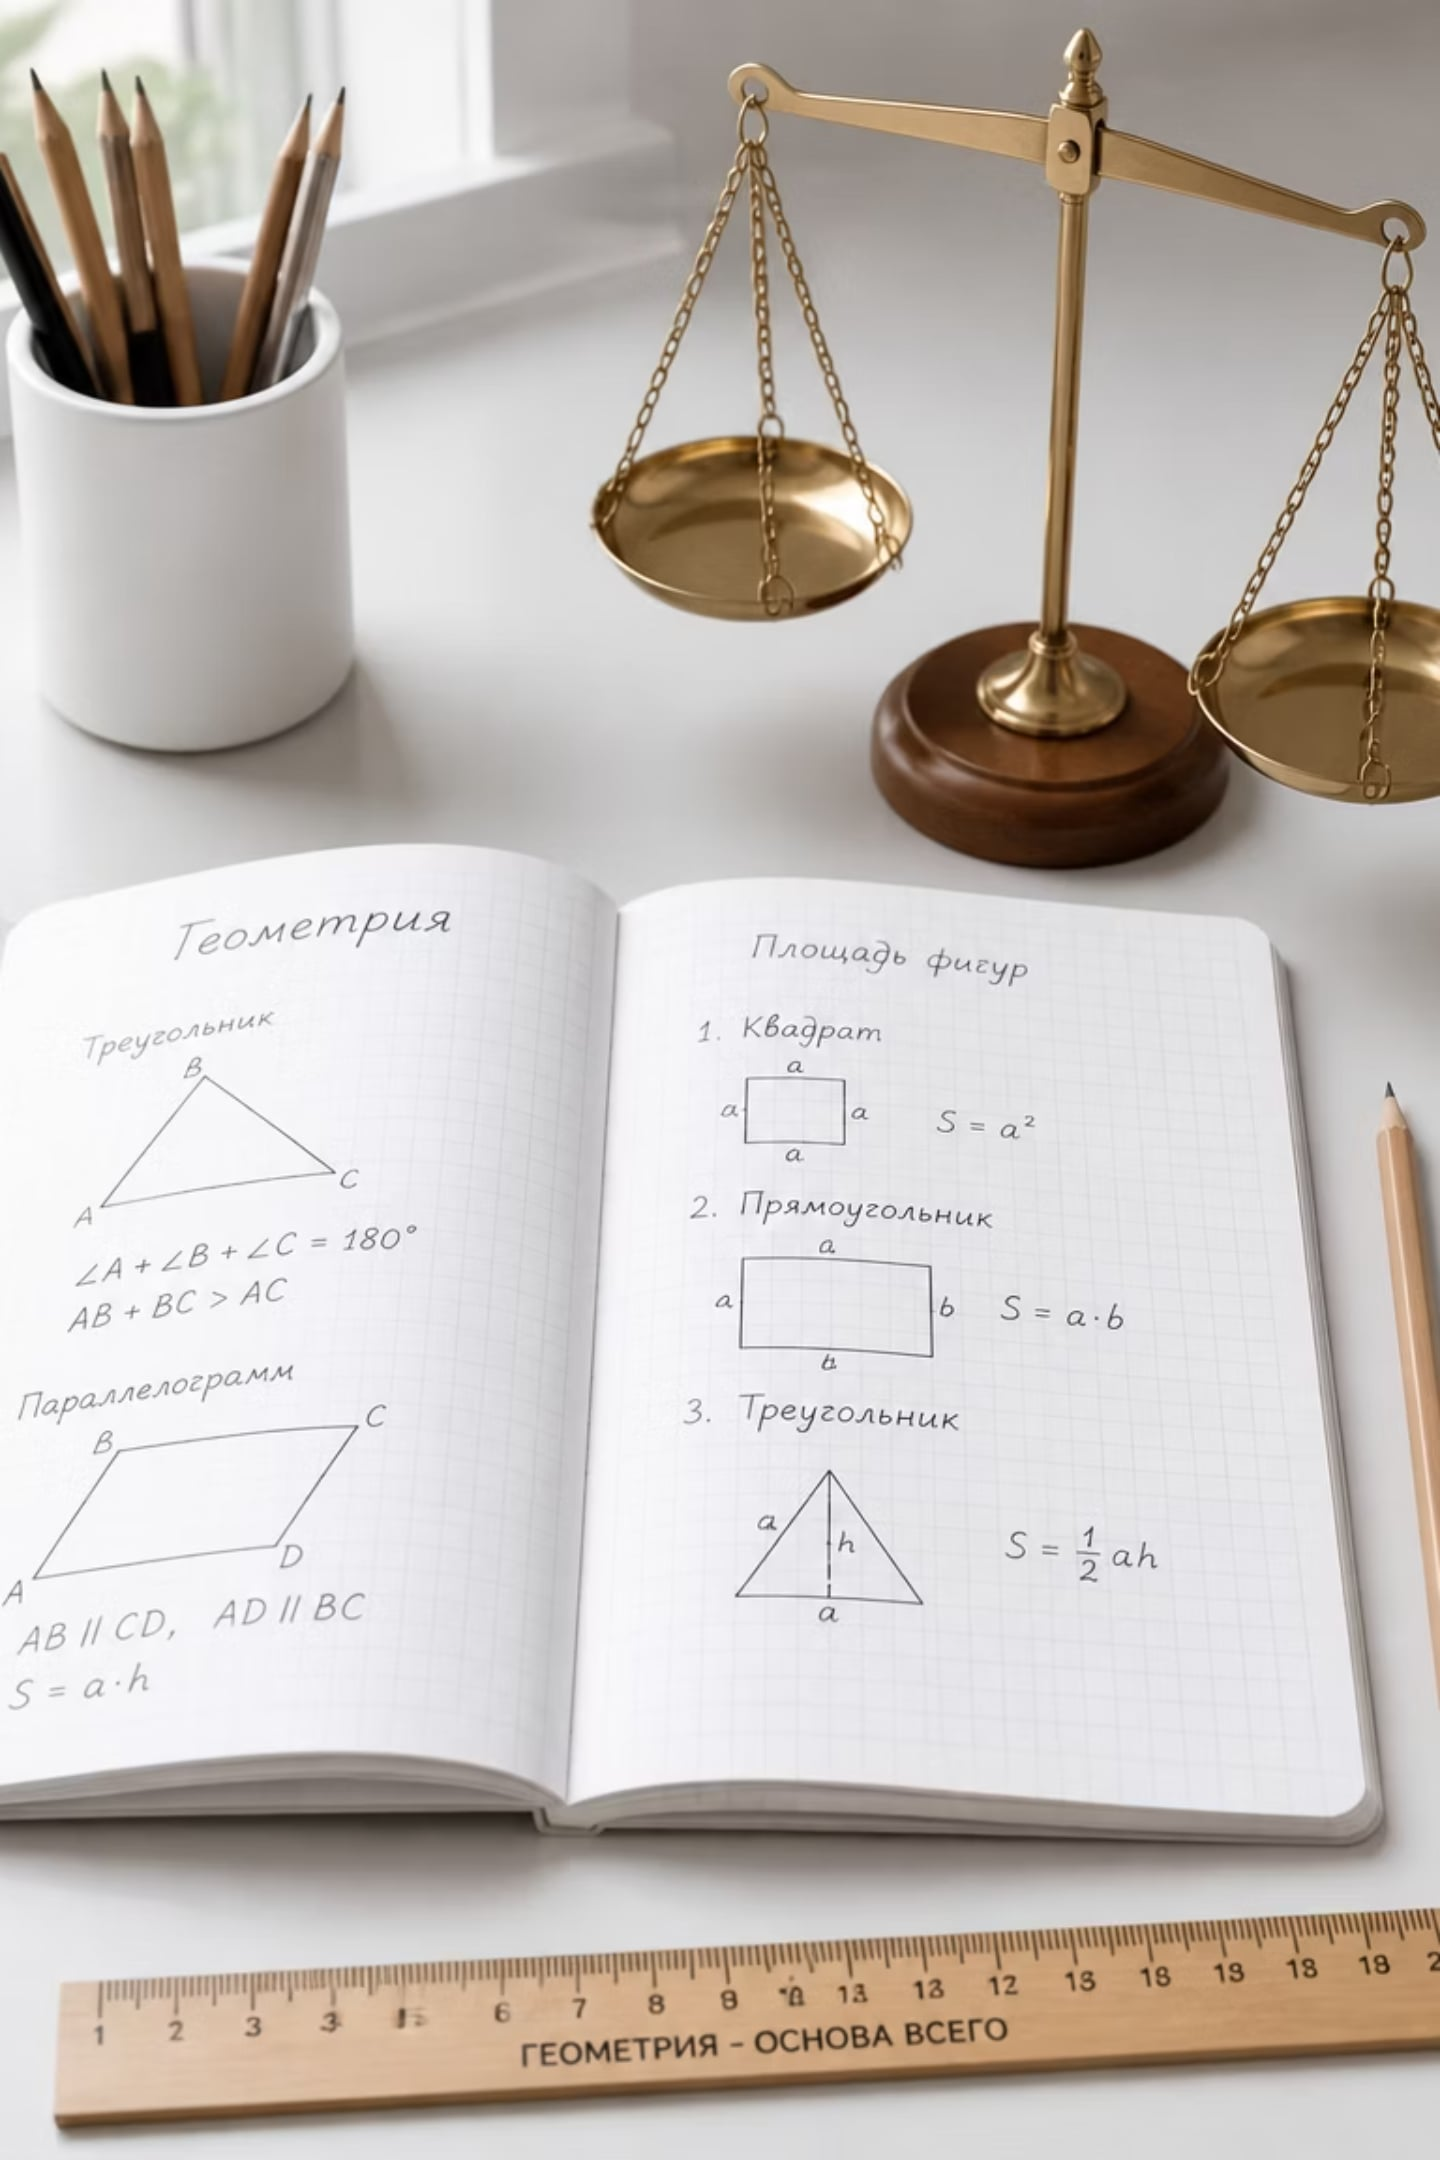 Геометрия
Треугольник
B
C
A
∠A + ∠B + ∠C = 180°
AB + BC > AC
Параллелограмм
B
C
D
A
AB || CD, AD || BC
S = a·h
Площадь фигур
1. Квадрат
a
a a
S = a²
a
2. Прямоугольник
a
a b
S = a·b
3. Треугольник
a
h
S = 1/2 ah
a
1 2 3 3 6 7 8 8 13 12 18 18
ГЕОМЕТРИЯ – ОСНОВА ВСЕГО